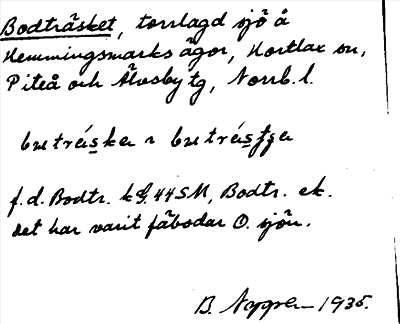 Bodträsket, torrlagd sjö å
Hemmingsmarks ägor, Hortlax sn,
Piteå och Älvsby tg, Norrb. l.
buträska ~ buträstja
f.d. Bodtr. 44 SM, Bodtr. ek.
det har varit fäbodar O. sjön.
B. 1935.